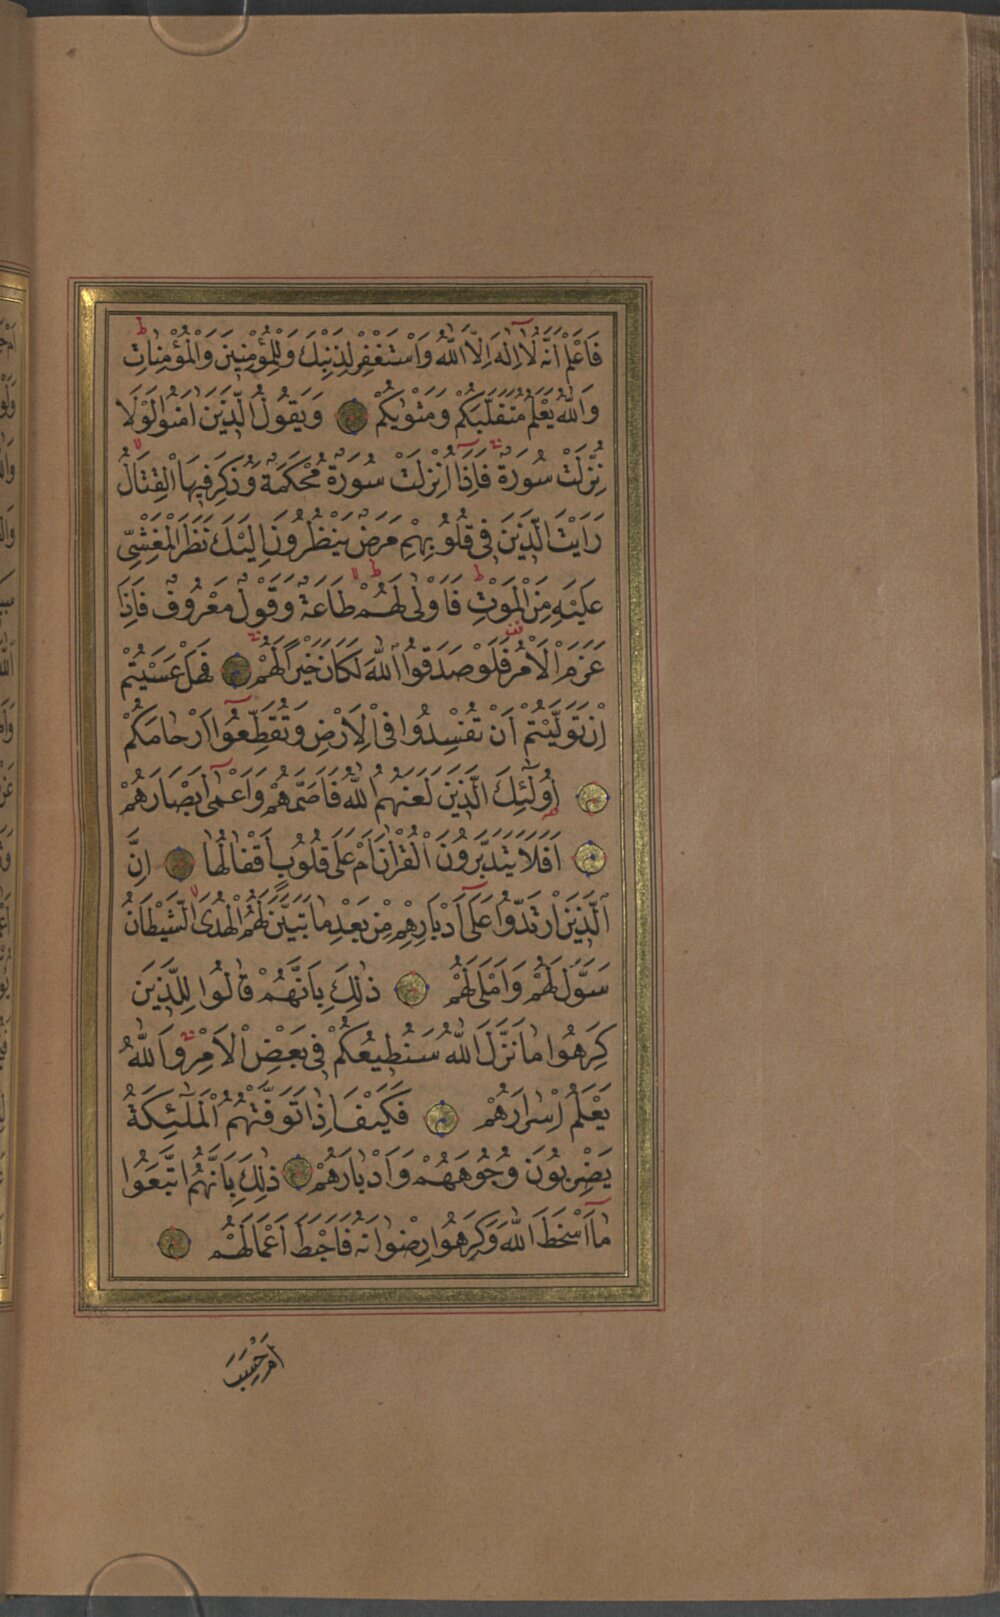 فَاعْلَمْ اَنَّهُ لَٓا اِلٰهَ اِلَّا اللّٰهُ وَاسْتَغْفِرْ لِذَنْبِكَ وَلِلْمُؤْمِنِينَ وَالْمُؤْمِنَاتِ ط
وَاللّٰهُ يَعْلَمُ مُتَقَلَّبَكُمْ وَمَثْوٰيكُمْ وَيَقُولُ الَّذِينَ اٰمَنُوا لَوْلَا
نُزِّلَتْ سُورَةٌ فَاِذَٓا اُنْزِلَتْ سُورَةٌ مُحْكَمَةٌ وَذُكِرَ فِيهَا الْقِتَالُ لا
رَاَيْتَ الَّذِينَ فِى قُلُوبِهِمْ مَرَضٌ يَنْظُرُونَ اِلَيْكَ نَظَرَ الْمَغْشِىِّ
عَلَيْهِ مِنَ الْمَوْتِ ط فَاَوْلٰى لَهُمْ ط طَاعَةٌ وَقَوْلٌ مَعْرُوفٌ فَاِذَا
عَزَمَ الْاَمْرُ فَلَوْ صَدَقُوا اللّٰهَ لَكَانَ خَيْرًا لَهُمْ فَهَلْ عَسَيْتُمْ
اِنْ تَوَلَّيْتُمْ اَنْ تُفْسِدُوا فِى الْاَرْضِ وَتُقَطِّعُٓوا اَرْحَامَكُمْ
اُولٰٓئِكَ الَّذِينَ لَعَنَهُمُ اللّٰهُ فَاَصَمَّهُمْ وَاَعْمٰٓى اَبْصَارَهُمْ
اَفَلَا يَتَدَبَّرُونَ الْقُرْاٰنَ اَمْ عَلٰى قُلُوبٍ اَقْفَالُهَا اِنَّ
الَّذِينَ ارْتَدُّوا عَلٰٓى اَدْبَارِهِمْ مِنْ بَعْدِ مَا تَبَيَّنَ لَهُمُ الْهُدَى لا الشَّيْطَانُ
سَوَّلَ لَهُمْ وَاَمْلٰى لَهُمْ ذٰلِكَ بِاَنَّهُمْ قَالُوا لِلَّذِينَ
كَرِهُوا مَا نَزَّلَ اللّٰهُ سَنُطِيعُكُمْ فِى بَعْضِ الْاَمْرِ وَاللّٰهُ
يَعْلَمُ اِسْرَارَهُمْ فَكَيْفَ اِذَا تَوَفَّتْهُمُ الْمَلٰٓئِكَةُ
يَضْرِبُونَ وُجُوهَهُمْ وَاَدْبَارَهُمْ ذٰلِكَ بِاَنَّهُمُ اتَّبَعُوا
مَٓا اَسْخَطَ اللّٰهَ وَكَرِهُوا رِضْوَانَهُ فَاَحْبَطَ اَعْمَالَهُمْ
اَمْ حَسِبَ